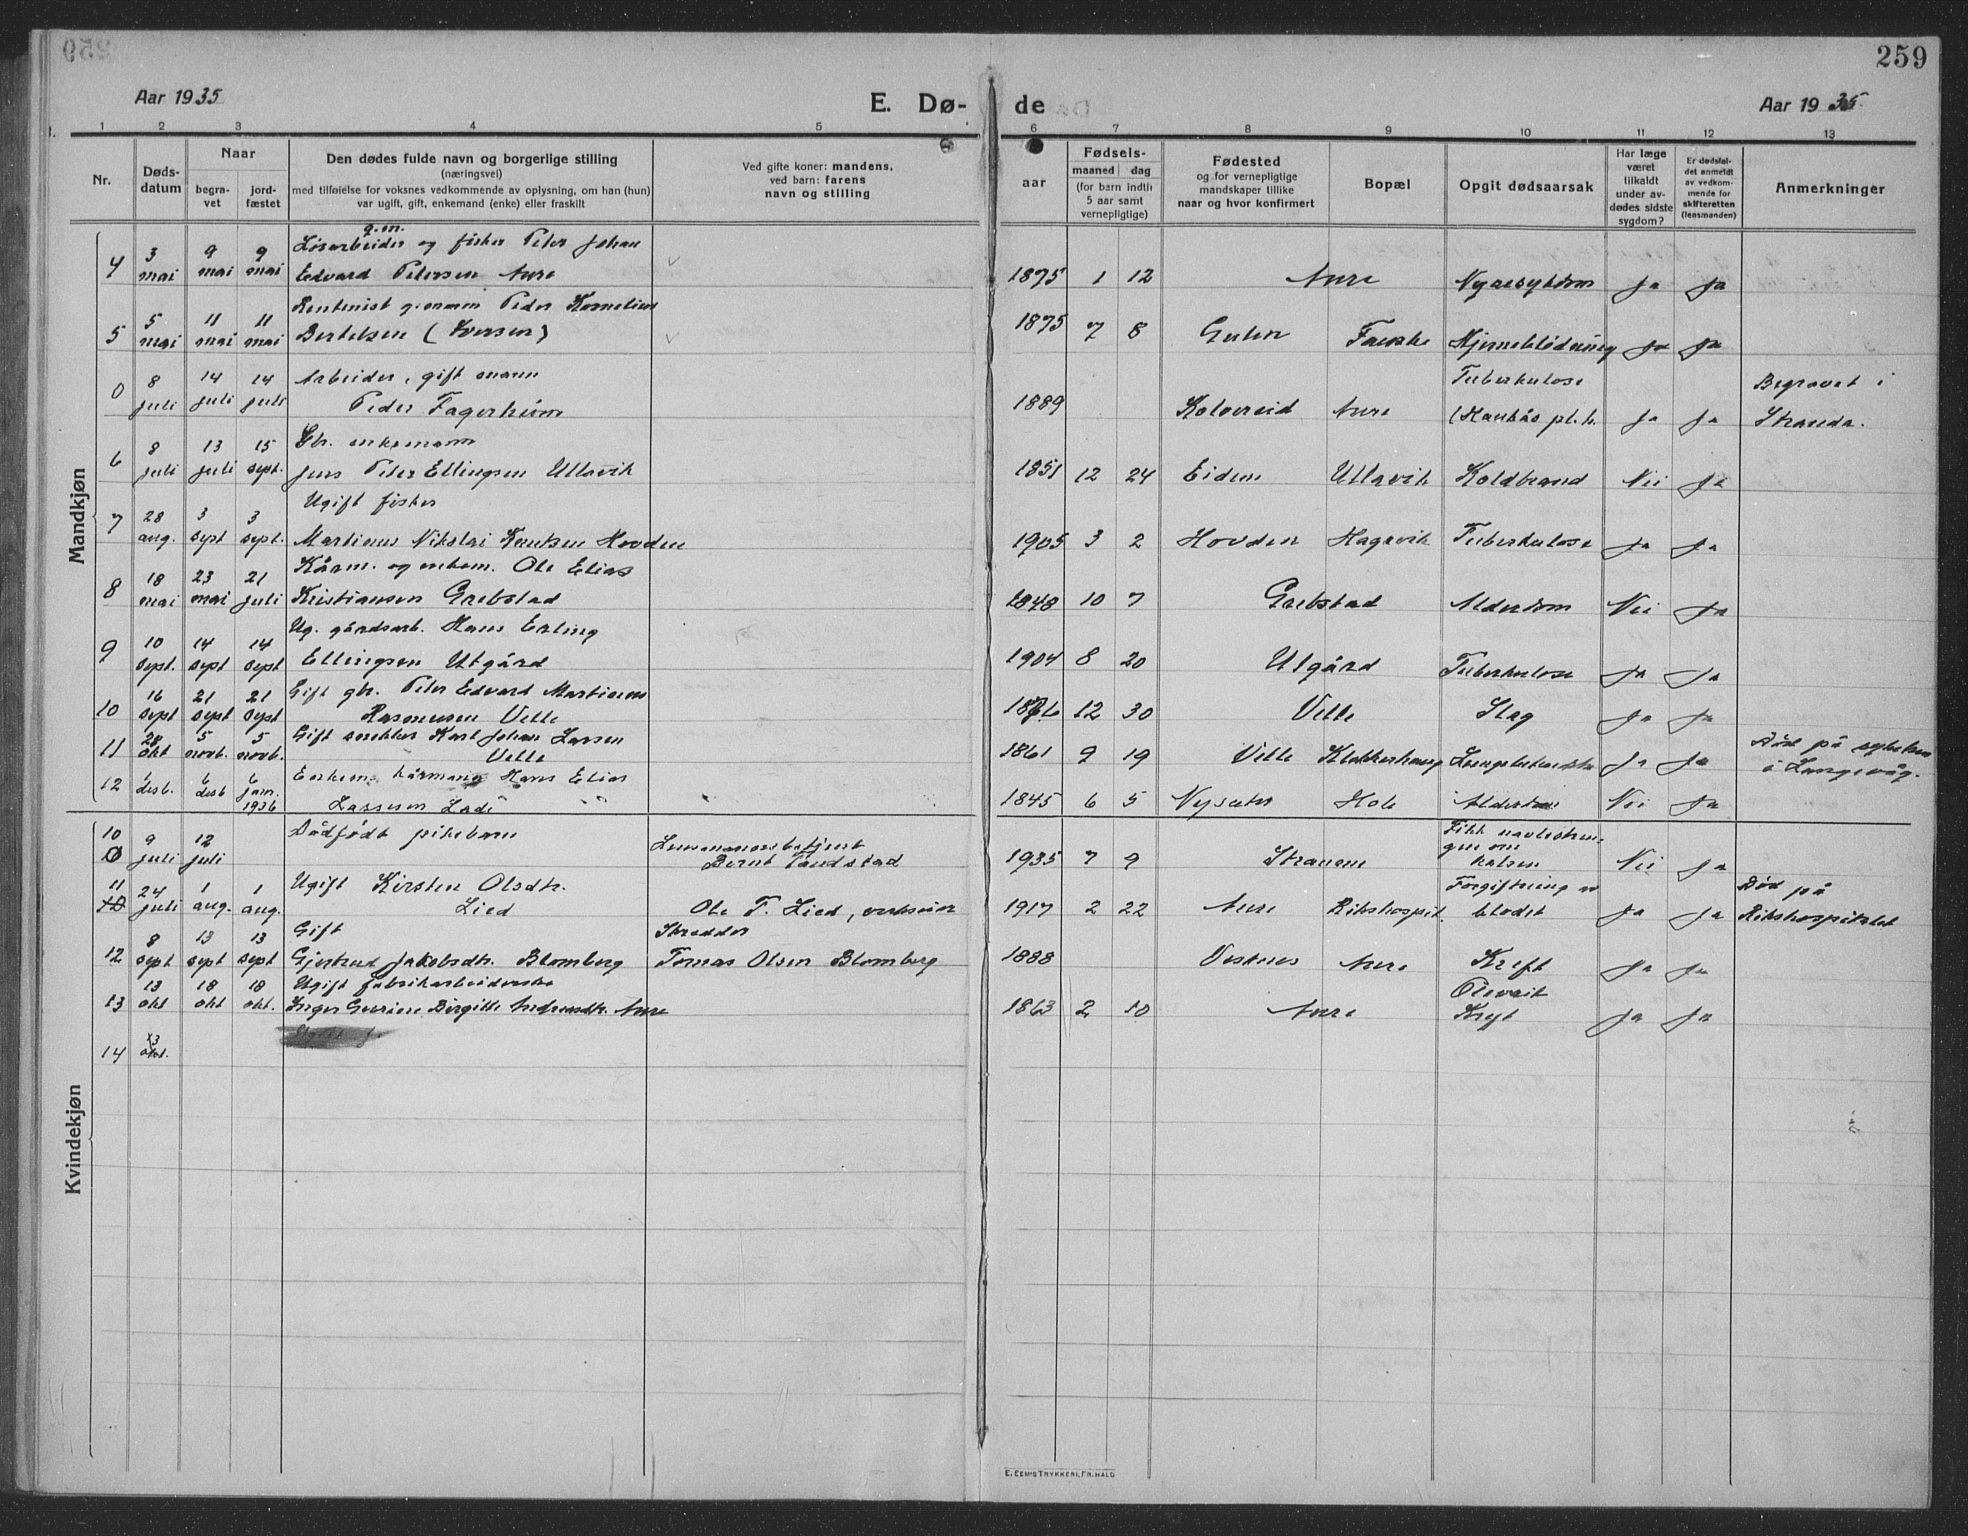 259
Aar 1935
E. Dø-
de
Aar 1935
1 2 3 4 5 6 7 8 9 10 11 12 13
Nr.
Døds-
datum
Naar
begra-
vet
jord-
fæstet
Den dødes fulde navn og borgerlige stilling
(næringsvei)
med tilføielse for voksnes vedkommende av oplysning, om han (hun)
var ugift, gift, enkemand (enke) eller fraskilt
Ved gifte koner: mandens,
ved barn: farens
navn og stilling
aar
Fødsels-
maaned dag
(for barn indtil
5 aar samt
vernepligtige)
Fødested
og for vernepligtige
mandskaper tillike
naar og hvor konfirmert
Bopæl
Opgit dødsaarsak
Har læge
været
tilkaldt
under av-
dødes sidste
sygdom?
Er dødsfal-
det anmeldt
av vedkom-
mende for
skifteretten
(lensmanden)
Anmerkninger
Mandkjøn
g.m.
3 9 9 Løsarbeider og fisker Peter Johan
4 mai mai mai Edvard Petersen Aure 1875 1 12 Aure Nyresykdom Ja Ja
5 11 11 Rentenist g.mann Peder Kornelius
5 mai mai mai Bertelsen (Iversen) 1875 7 8 Gulen Fauske Hjerneblödning Ja Ja
8 14 14 Arbeider, gift mann Tuberkulose Begravet i
0 juli juli juli Peder Fagerheim 1889 Kolvereid Aure (Haukås pl.h. Ja Ja Stranda.
8 13 15 Gbr. enkemann
6 juli juli sept. Jens Peter Ellingsen Utlavik 1851 12 24 Eidem Utlavik Koldbrand Nei Ja
28 3 3 Ugift fisker
7 aug. sept sept. Martinus Nikolai Knutsen Hovden 1905 3 2 Hovden Hagevik Tuberkulose Ja Ja
18 23 21 Kårm. og enkem. Ole Elias
8 mai mai juli Kristiansen Grebstad 1848 10 7 Grebstad Alderdom Nei Ja
10 14 14 Ug. gårdsarb. Hans Erling
9 sept. sept sept Ellingsen Utgård 1904 8 20 Utgård Tuberkulose Ja Ja
16 21 21 Gift gbr. Peter Edvart Martinus
10 sept sept sept Rasmussen Velle 12 30 Velle Slag Ja Ja
28 5 5 Gift snekker Karl Johan Larsen Död på sykehus
11 okt novb. novb. Velle 1861 9 19 Velle Klokkerhaug Ja Ja i Langevåg.
1 6 6 Enkem. kårmann Hans Elias
12 desb. desb jan. 1936 Lassesen Lade 1845 6 5 Nysæter Hole Alderdom Nei Ja
Kvindekjøn
10 9 12 Dödfödt pikebarn Lensmannsbetjent Fikk navlestren-
gen om
0 juli juli Bernt Tandstad 1935 7 9 Straumen halsen Nei Ja
11 24 1 1 Ugift Kirsten Olsdtr. Forgiftning av Död på
10 juli aug. aug. Lied Ole T. Lied, 1917 2 22 Aure Rikshospit. blodet Ja Ja Rikshospitalet
8 13 13 Gift Skredder
12 sept sept sept Gjertrud Jakobsdtr. Blomberg Tomas Olsen Blomberg 1888 Vestnes Aure Kreft Ja Ja
13 18 18 Ugift fabrikarbeiderske
13 okt okt okt. Inger Birgitte Andreasdtr. Aure 1863 2 10 Aure Ja Ja
14 okt.
E. SEM'S TRYKKERI, FR.HALD